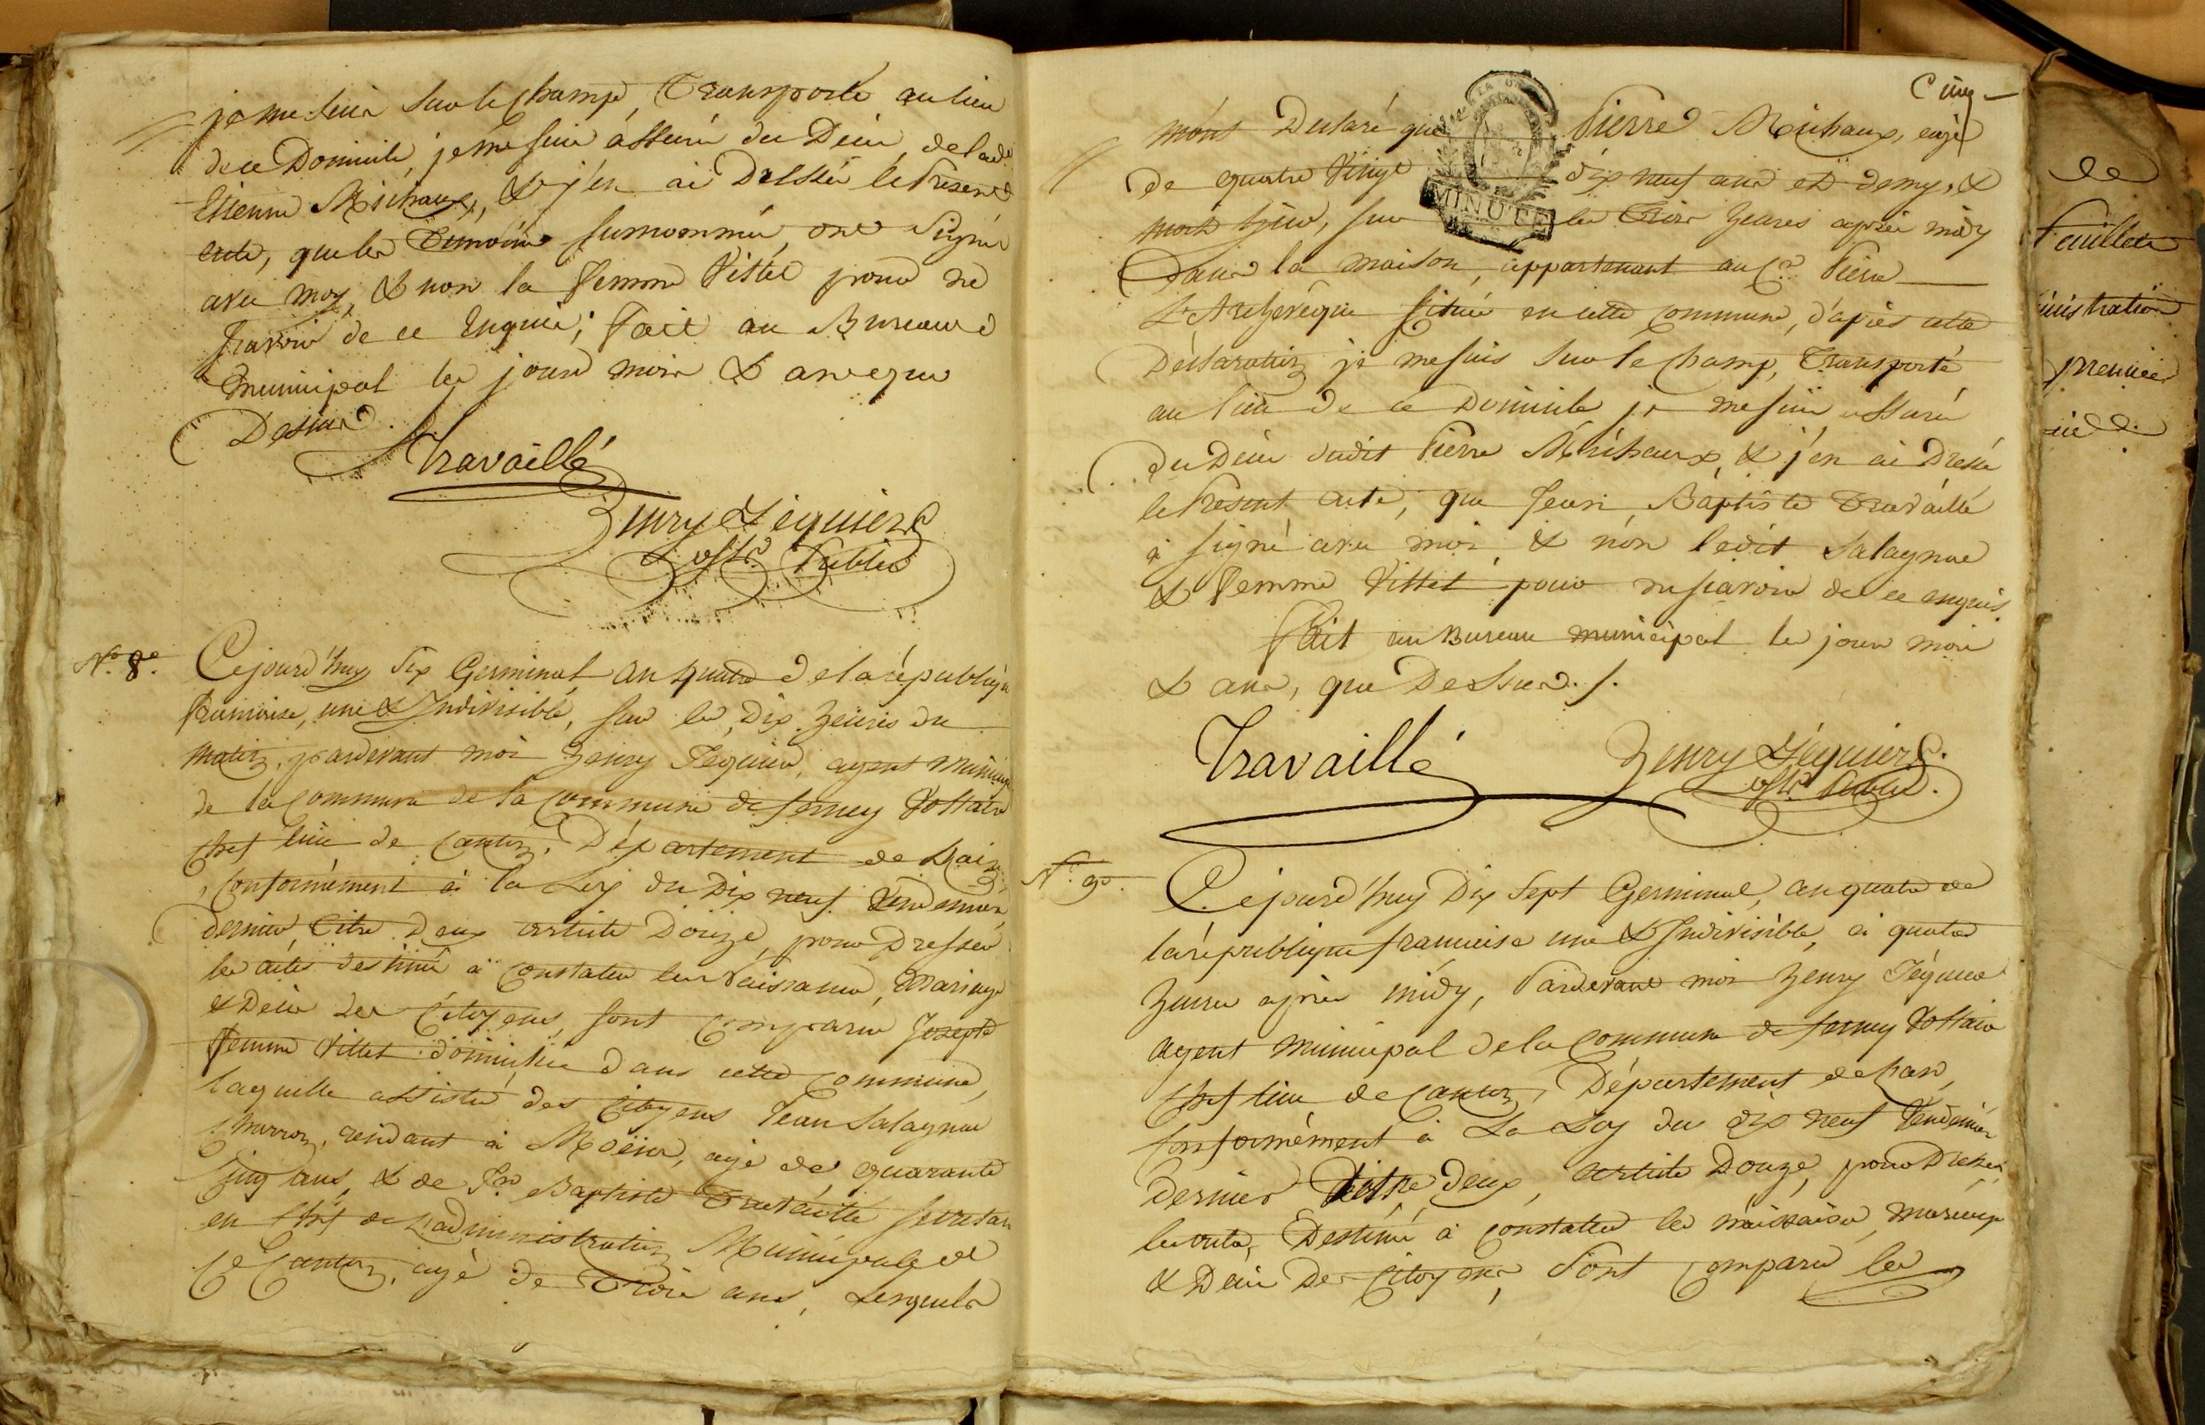 je me suis sur le champ, Transporté au lieu
de ce Domicile, je me suis assuré du Décés, de lad.
Etienne Michaux, & j'en ai Dressé le Présent
acte, que les Témoins surnommés, ont Signé
avec moy, & non la femme Vittet pour ne
Savoir de ce Enquis; fait au Bureau
municipal les jour mois & an que
Dessus.
Travaillé
Henry Séquier
off. Public
N.º 8º. Cejourd'huy Six Germinal an quatre de la républiq
française, une & Indivisible, sur les Dix heures du
matin, pardevant moi Henry Séquier, agent Municip
de la Commune de la Commune de ferney Voltaire
Chef lieu de Canton, Département de L'ain
, Conformément à la Loy du Dix neuf Vendémiaire,
dernier, titre Deux article Douze, pour Dresser
les actes destinés à Constater les Naissances, Mariage
& Décès des Citoyens, sont Comparus Josepte
femme Vittet domiciliée dans cette Commune,
laquelle assistée des Citoyens Jean Salagnac
Charron, résidant à Moëns, agé de quarante
Cinq ans, & de Jn. Baptiste Travaillé Secrétair
en Chef de L'administration Municipale de
Ce Canton, agé de Trois ans, Lesquels
Cinq
m'ont Déclaré que Pierre Michaux, agé
de quatre Vingt dix neuf ans et demy, &
mort hier, sur les Trois heures après midy
Dans la maison, appartenant au Cn. Pierre
L'Archevêque située en cette Commune, d'après cette
Déclaration je me suis sur le Champ, Transporté
au lieu de ce Domicile je me suis assuré
du Décès dudit Pierre Michaux, & j'en ai Dressé
le Présent acte, que Jean Baptiste Travaillé
à signé avec moi, & non ledit Salagnac
& femme Vittet pour ne Savoir de ce enquis
Fait au Bureau municipal les jour mois
& ans, que Dessus./.
MINUTE
Travaillé
Henry Séquier
off. Public.
N.º 9º. Cejourd'huy Dix Sept Germinal, an quatre de
la république française une & Indivisible, à quatre
heures après midy, Pardevant moi Henry Séquier
agent municipal de la Commune de ferney Voltaire
Chef lieu de Canton, Département de l'ain,
Conformément à La Loy du dix neuf Vendémiair
dernier Titre, deux, article Douze, pour Dresser
les actes, Destinés à Constater les naissances, mariage
& Décès Des Citoyens, Sont Comparu les
de
feuillets
ministration
premier